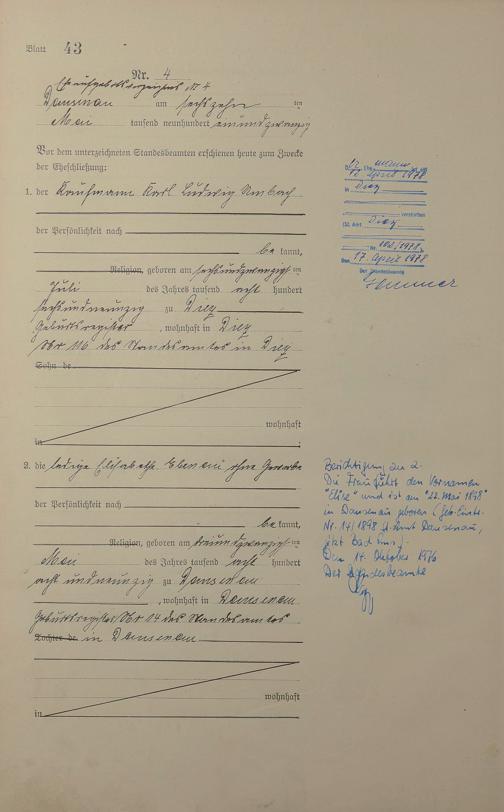 Blatt 43
Nr. 4
Eheaufgebotsverzeichnis Nr 4
Dausenau am sechszehnten
Mai tausend neunhundert einundzwanzig
Vor dem unterzeichneten Standesbeamten erschienen heute zum Zwecke
der Eheschließung:
1. der Kaufmann Karl Ludwig
der Persönlichkeit nach
be kannt,
Religion, geboren am sechsundzwanzigsten
Juli des Jahres tausend acht hundert
sechsundneunzig zu Diez
Geburtsregister, wohnhaft in Diez
Nr 116 des Standesamtes in Diez
Sohn de
wohnhaft
in
2. die ledige Elisabeth ohne Gewerbe
der Persönlichkeit nach
be kannt,
Religion, geboren am dreiundzwanzigsten
Mai des Jahres tausend acht hundert
acht undneunzig zu Dausenau
, wohnhaft in Dausenau
Geburtsregister Nr 14 des Standesamtes
Tochter de in Dausenau
wohnhaft
in
12. April 1978
in Diez
verstorben
St. Amt Diez
Nr. 102/1978
Den 17. April 1978
Der Standesbeamte
Berichtigung zu 2.
Die Frau führt den Vornamen
"Elise" und ist am "22. Mai 1898"
in Dausenau geboren (Geb. Eintr.
Nr. 14/1898 St. Amt Dausenau,
jetzt Bad Ems).
Den 14. Oktober 1976
Der Standesbeamte